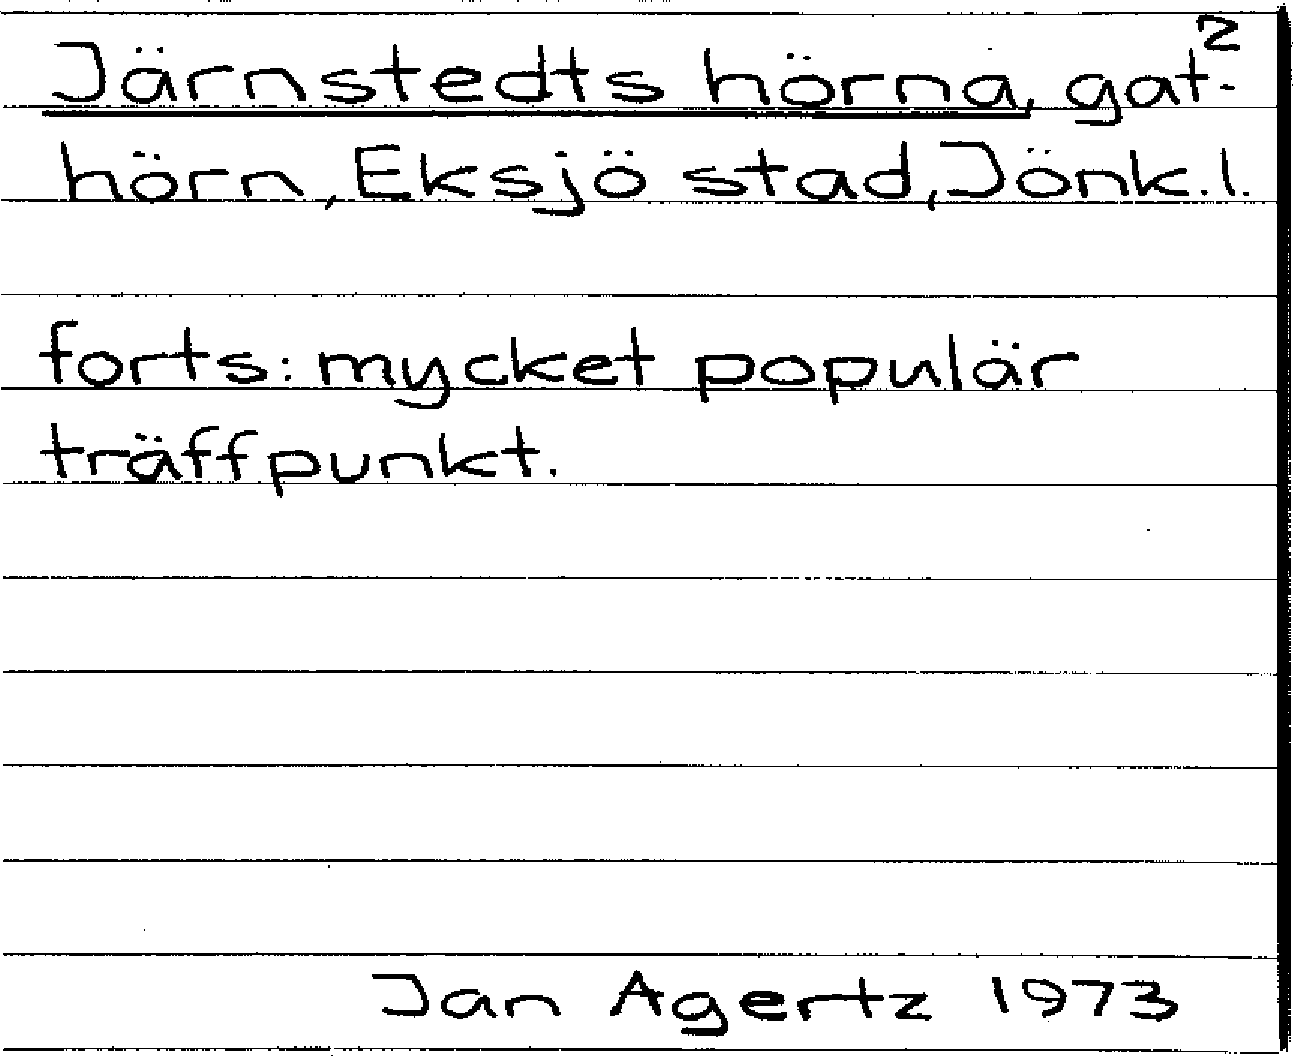 2
Järnstedts hörna, gat-
hörn, Eksjö stad, Jönk.l.
forts: mycket populär
träffpunkt.
Jan Agertz 1973